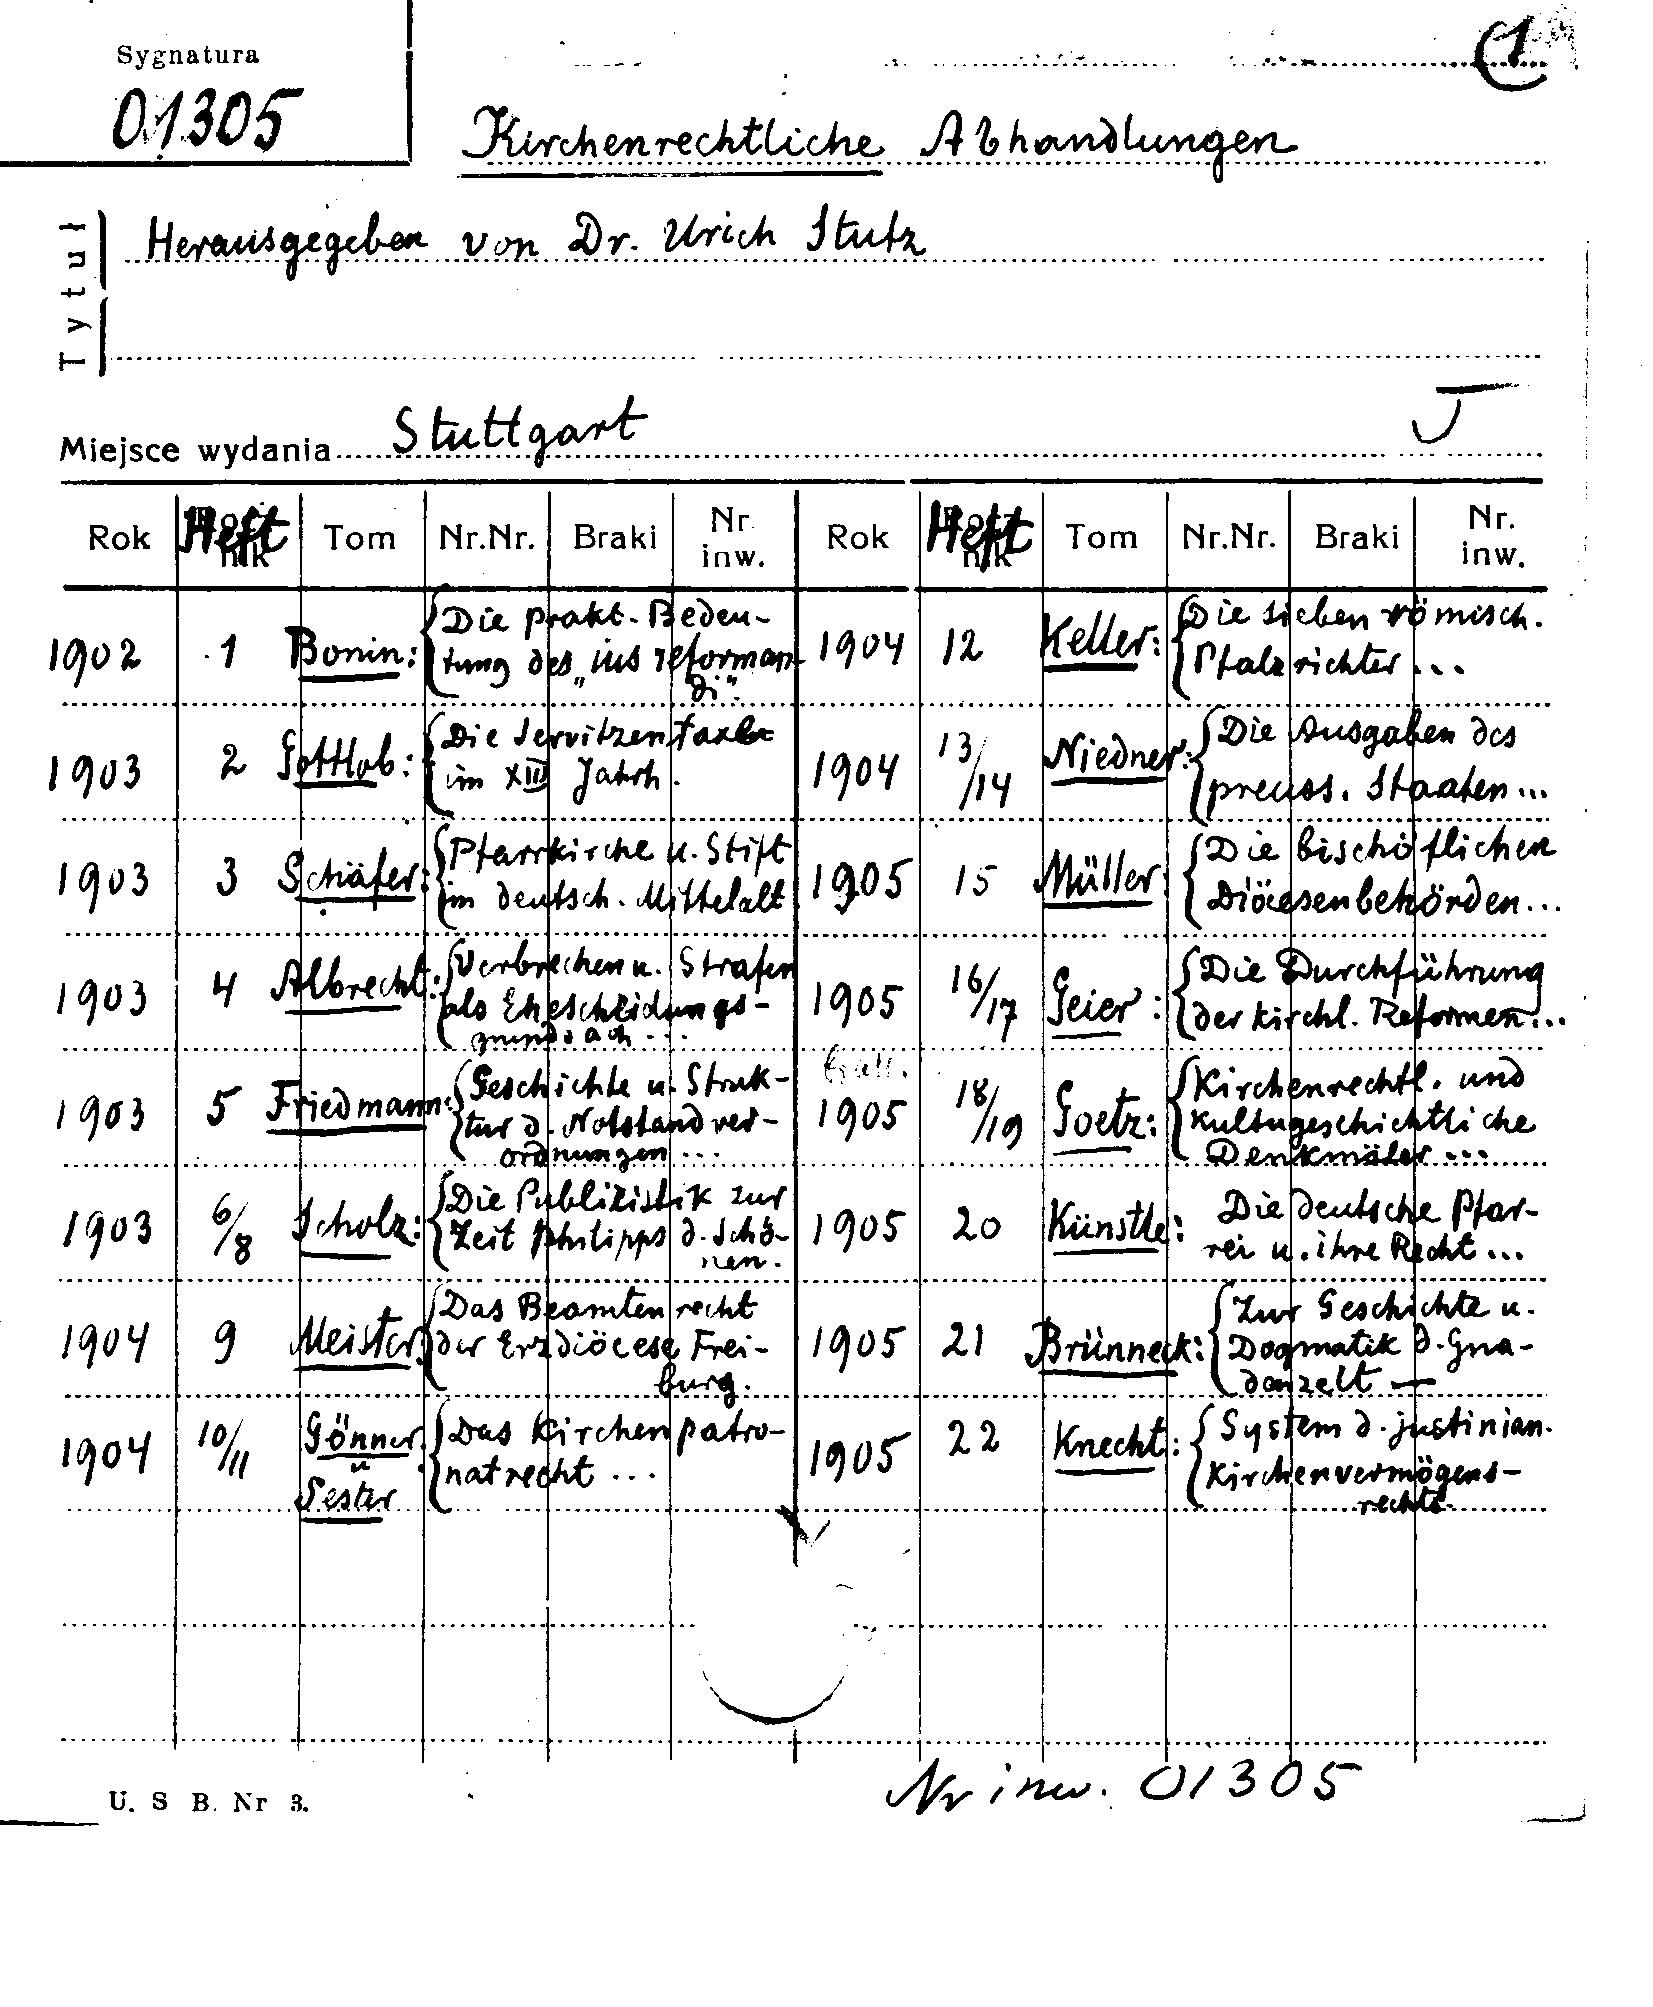 Sygnatura
01305
1
Kirchenrechtliche Abhandlungen
Tytuł
Herausgegeben von Dr. Urich Stutz
Miejsce wydania Stuttgart
J
Rok Heft Tom Nr.Nr. Braki Nr. inw. Rok Heft Tom Nr.Nr. Braki Nr. inw.
1902 1 Bonin: Die prakt. Bedeu-
tung des „ius reforman-
di".
1903 2 Gottlob: Die Servitzentaxe
im XIII Jahrh.
1903 3 Schäfer: Pfarrkirche u. Stift
im deutsch. Mittelalt
1903 4 Albrecht: Verbrechen u. Strafen
als Ehescheidungs-
grund nach ...
1903 5 Friedmann: Geschichte u. Struk-
tur d. Notstandver-
ordnungen ...
1903 6/8 Scholz: Die Publizistik zur
Zeit Philipps d. Schö-
nen.
1904 9 Meister: Das Beamtenrecht
der Erzdiöcese Frei-
burg.
1904 10/11 Gönner u Sester Das Kirchenpatro-
natrecht ...
1904 12 Keller: Die sieben römisch.
Pfalzrichter ...
1904 13/14 Niedner: Die Ausgaben des
preuss. Staaten ...
1905 15 Müller: Die bischöflichen
Diöcesenbehörden ...
1905 16/17 Geier: Die Durchführung
der kirchl. Reformen ...
1905 18/19 Goetz: Kirchenrechtl. und
kultugeschichtliche
Denkmäler ...
1905 20 Künstle: Die deutsche Pfar-
rei u. ihre Recht ...
1905 21 Brünneck: Zur Geschichte u.
Dogmatik d. Gna-
danzelt —
1905 22 Knecht: System d. justinian.
Kirchenvermögens-
rechts.
U. S B. Nr 3.
Nr inw. 01305